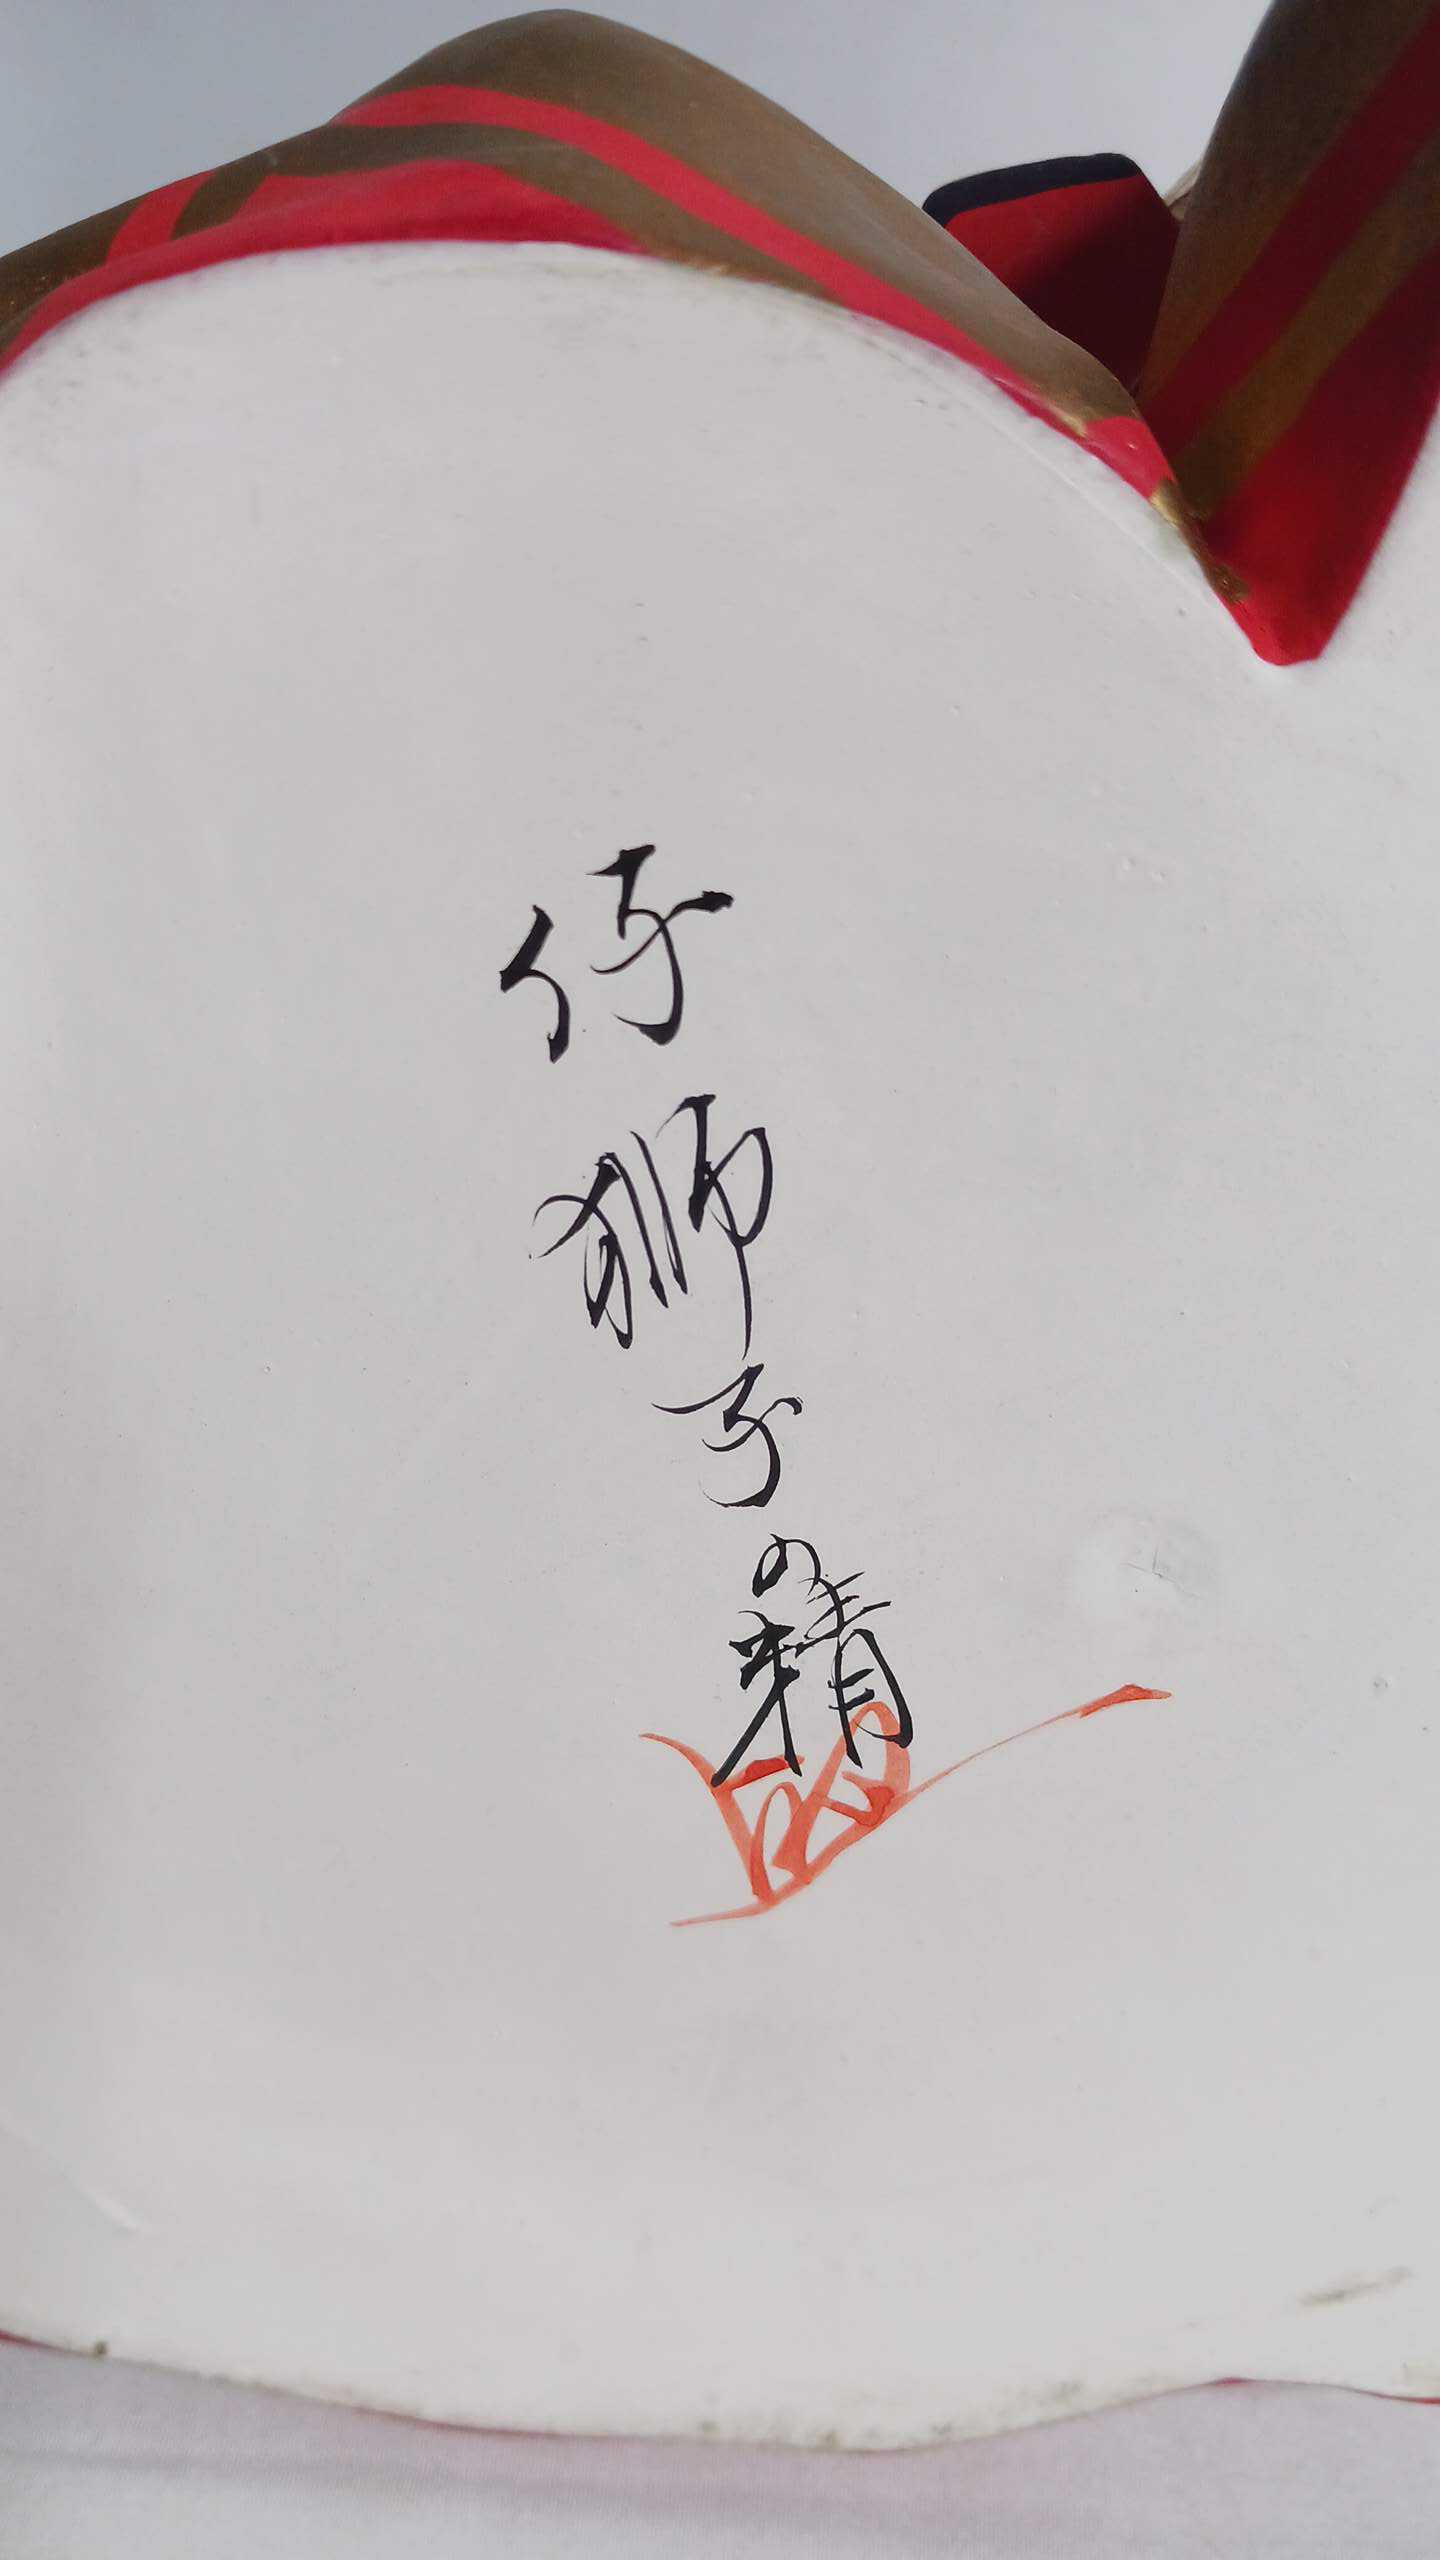 仔獅子の精